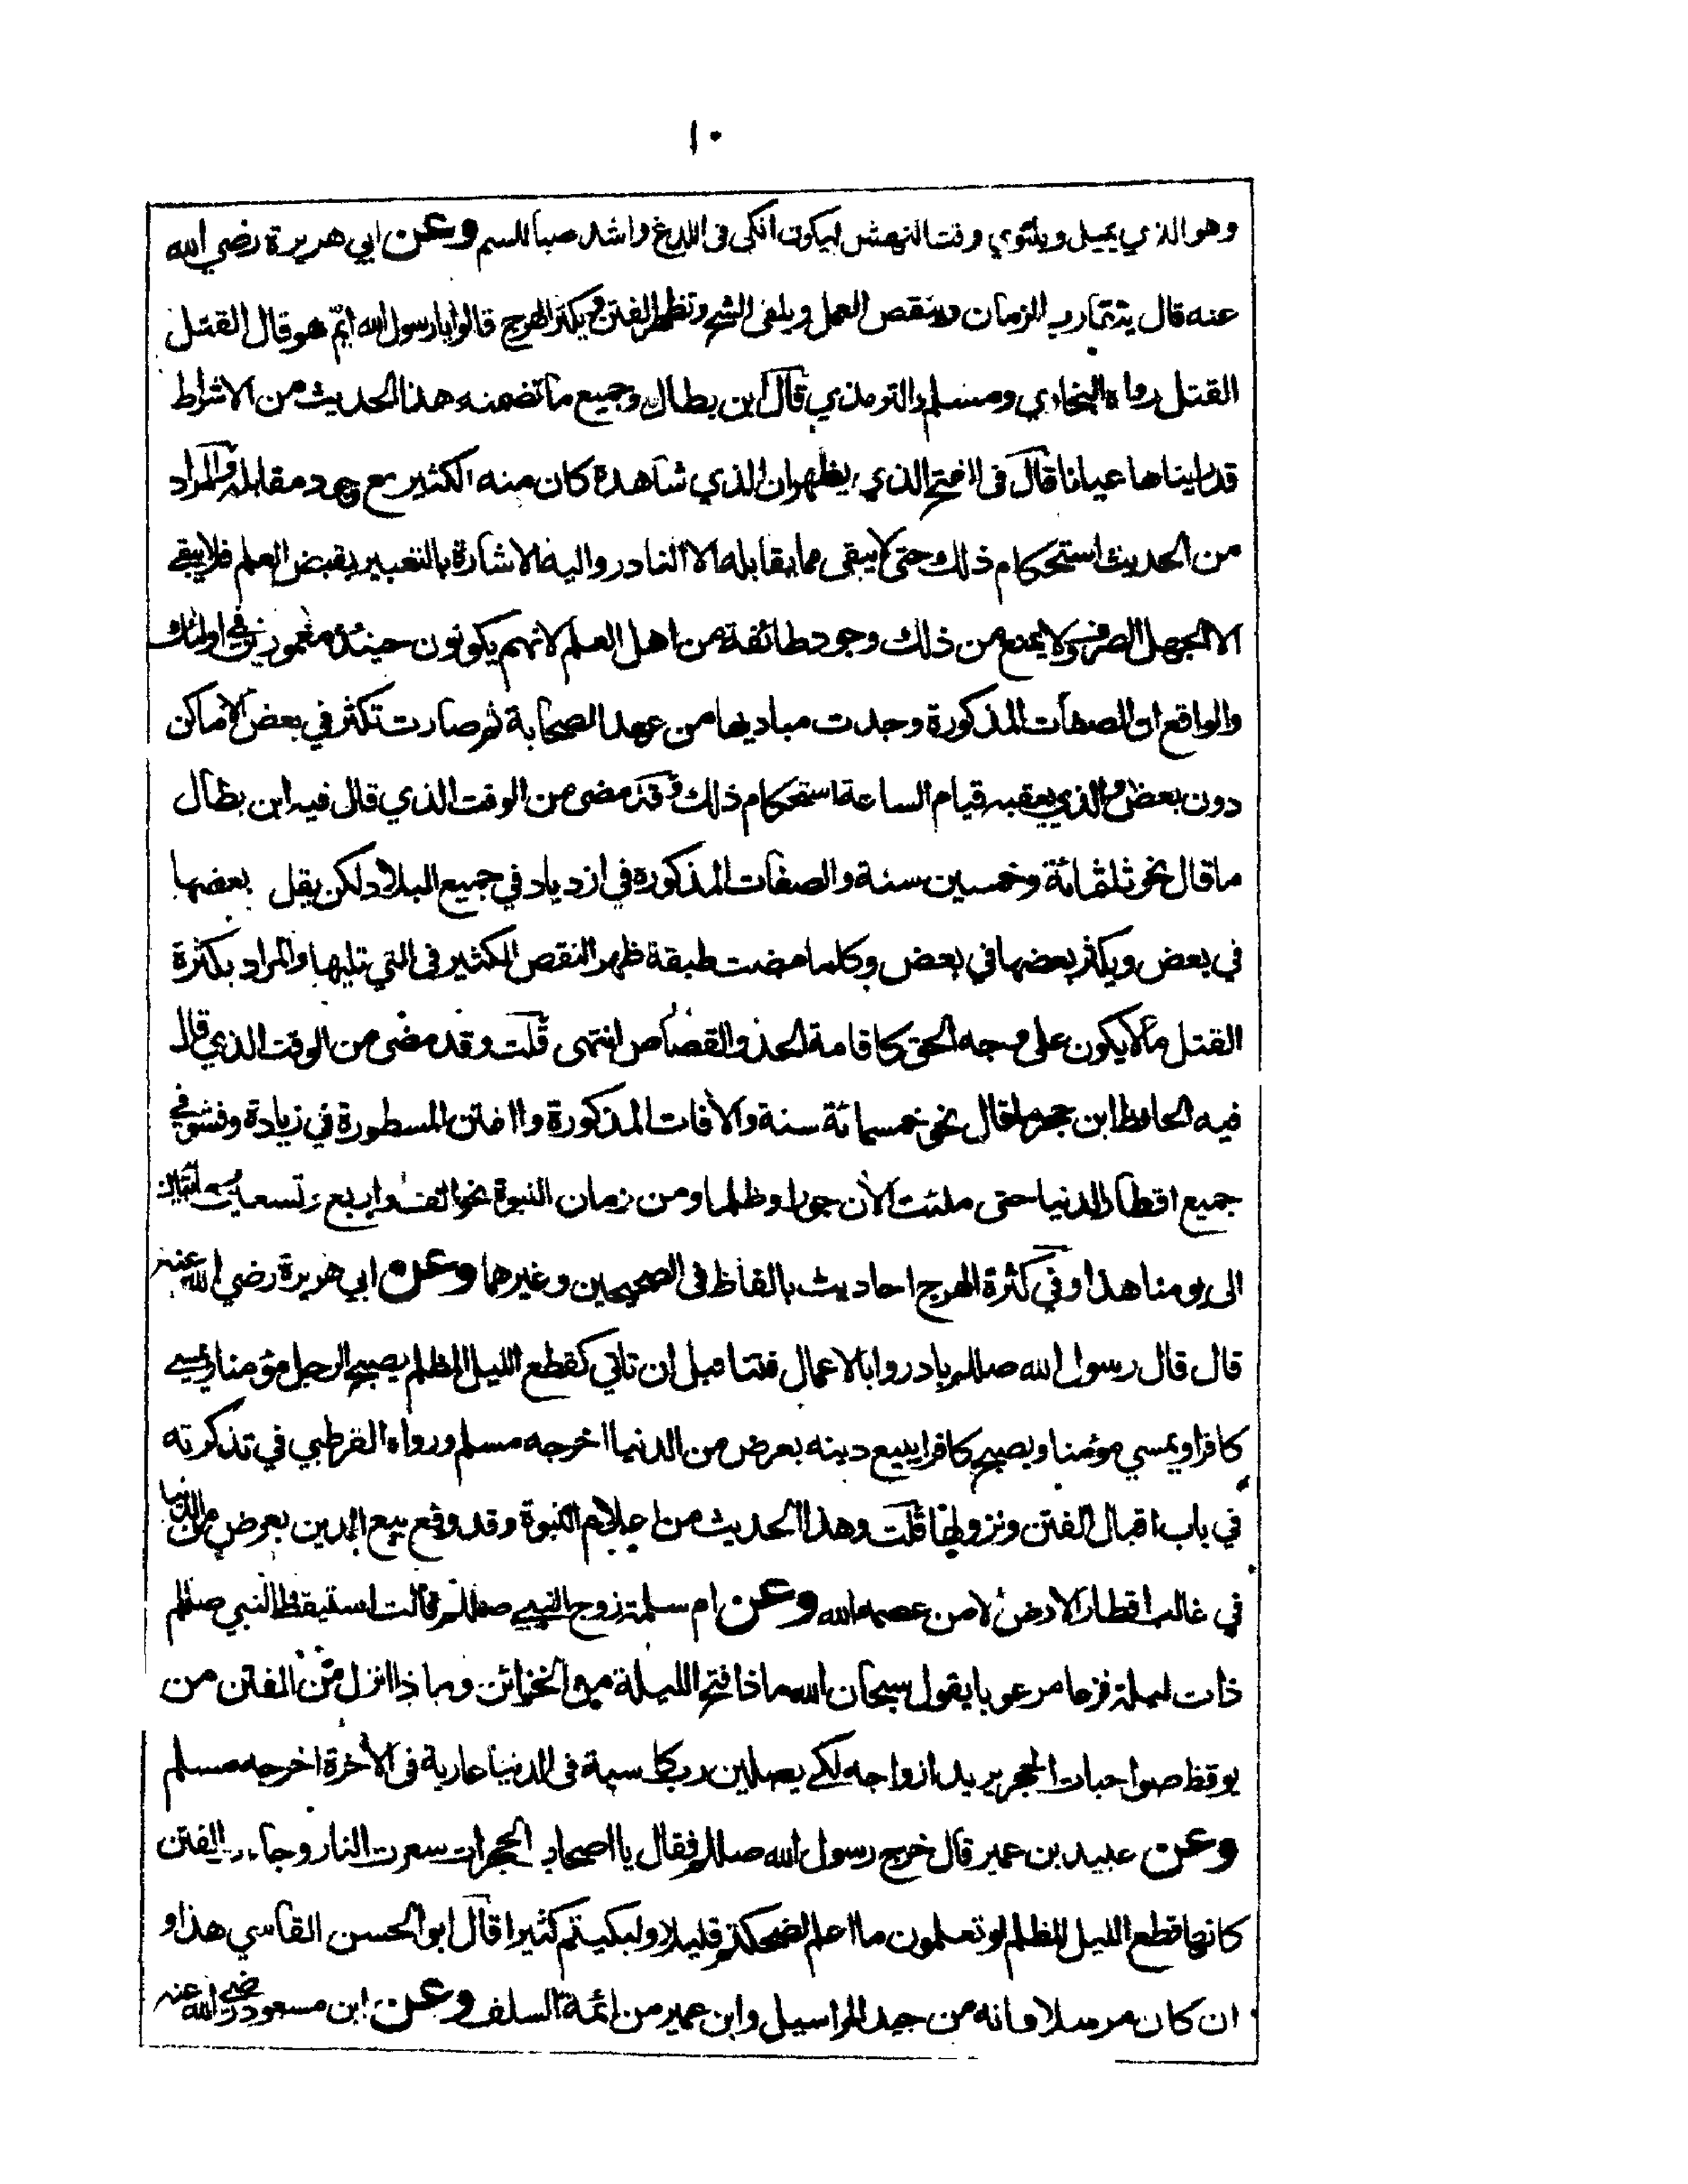 ١٠
وهو الذي يميل ويلتوي وقت النهش ليكون انكى في اللدغ واشد صبا للسم وعن ابي هريرة رضي الله
عنه قال يتقارب الزمان وينقص العمل ويلقى الشح وتظهر الفتن ويكثر الهرج قالوا يا رسول الله ايم هو قال القتل
القتل رواه البخاري ومسلم والترمذي قال ابن بطال وجميع ما تضمنه هذا الحديث من الاشراط
قد رايناها عيانا قال في الفتح الذي يظهر ان الذي شاهده كان منه الكثير مع وجود مقابله والمراد
من الحديث استحكام ذلك حتى لا يبقى مما يقابله الا النادر واليه الاشارة بالتعبير بقبض العلم فلا يبقى
الا الجهل الصرف ولا يمنع من ذلك وجود طائفة من اهل العلم لانهم يكونون حينئذ مغمورين في اولئك
والواقع ان الصفات المذكورة وجدت مباديها من عهد الصحابة ثم صارت تكثر في بعض الاماكن
دون بعض والذي يعقبه قيام الساعة استحكام ذلك وقد مضى من الوقت الذي قال فيه ابن بطال
ما قال نحو ثلثمائة وخمسين سنة والصفات المذكورة في ازدياد في جميع البلاد لكن يقل بعضها
في بعض ويكثر بعضها في بعض وكلما مضت طبقة ظهر النقص الكثير في التي تليها والمراد بكثرة
القتل ما لا يكون على وجه الحق كاقامة الحد والقصاص انتهى قلت وقد مضى من الوقت الذي قال
فيه الحافظ ابن حجر ما قال نحو خمسمائة سنة والآفات المذكورة والفتن المسطورة في زيادة وفشو في
جميع اقطار الدنيا حتى ملئت الآن جورا وظلما ومن زمان النبوة نحو الف واربع وتسعين
الى يومنا هذا وفي كثرة الهرج احاديث بالفاظ في الصحيحين وغيرهما وعن ابي هريرة رضي الله عنه
قال قال رسول الله صللم بادروا بالاعمال فتنا قبل ان تاتي كقطع الليل المظلم يصبح الرجل مؤمنا ويمسي
كافرا ويمسي مؤمنا ويصبح كافرا يبيع دينه بعرض من الدنيا اخرجه مسلم ورواه القرطبي في تذكرته
في باب اقبال الفتن ونزولها قلت وهذا الحديث من اعلام النبوة وقد وقع بيع الدين بعرض من الدنيا
في غالب اقطار الارض الا من عصمه الله وعن ام سلمة زوج النبي صللم قالت استيقظ النبي صللم
ذات ليلة فزعا مرعوبا يقول سبحان الله ماذا فتح الليلة من الخزائن وماذا انزل من الفتن من
يوقظ صواحبات الحجر يريد ازواجه لكي يصلين رب كاسية في الدنيا عارية في الآخرة اخرجه مسلم
وعن عبيد بن عمير قال خرج رسول الله صللم فقال يا اصحاب الحجرات سعرت النار وجاءت الفتن
كانها قطع الليل المظلم لو تعلمون ما اعلم لضحكتم قليلا ولبكيتم كثيرا قال ابو الحسن القابسي هذا و
ان كان مرسلا فانه من جيد المراسيل وابن عمير من ائمة السلف وعن ابن مسعود رضي الله عنه